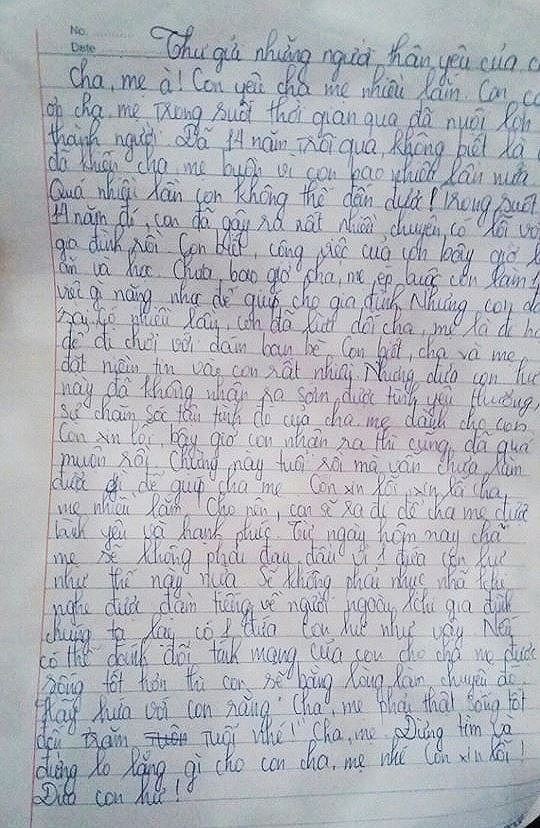 No.
Date
Thư gửi những người thân yêu của c
Cha, mẹ à! Con yêu cha mẹ nhiều lắm. Con c
ơn cha, mẹ trong suốt thời gian qua đã nuôi lớn
thành người. Đã 14 năm trôi qua, không biết là
đã khiến cha, mẹ buồn vì con bao nhiêu lần nữa
Quá nhiều lần con không thể đến được! Trong suốt
14 năm đó, con đã gây ra rất nhiều chuyện có lỗi vớ
gia đình rồi. Con biết, công việc của con bây giờ l
ăn và học. Chưa bao giờ cha, mẹ ép buộc con làm 1
việc gì nặng nhọc để giúp cho gia đình. Nhưng con đã
nhiều lần, con đã lừa dối cha, mẹ là đi họ
để đi chơi với đám bạn bè. Con biết, cha và mẹ
đặt niềm tin vào con rất nhiều. Nhưng đứa con hư
này đã không nhận ra sớm được tình yêu thương,
sự chăm sóc tận tình đó của cha, mẹ dành cho con.
Con xin lỗi, bây giờ con nhận ra thì cũng đã quá
muộn rồi. Chừng này tuổi rồi mà vẫn chưa làm
được gì để giúp cha mẹ. Con xin lỗi, xin lỗi cha,
mẹ nhiều lắm! Cho nên, con sẽ ra đi để cha mẹ được
bình yên và hạnh phúc. Từ ngày hôm nay cha
mẹ sẽ không phải đau đầu vì 1 đứa con hư
như thế này nữa. Sẽ không phải nhục nhã khi
nghe được đàm tiếng về người ngoài khi gia đình
chúng ta lại có 1 đứa con hư như vậy. Nếu
có thể đánh đổi tính mạng của con cho cha mẹ được
sống tốt hơn thì con sẽ bằng lòng làm chuyện đó.
Hãy hứa với con rằng "Cha, mẹ phải thật sống tốt
đến trăm tuổi nhé!" Cha, mẹ. Đừng tìm và
đừng lo lắng gì cho con cha, mẹ nhé. Con xin lỗi!
Đứa con hư!